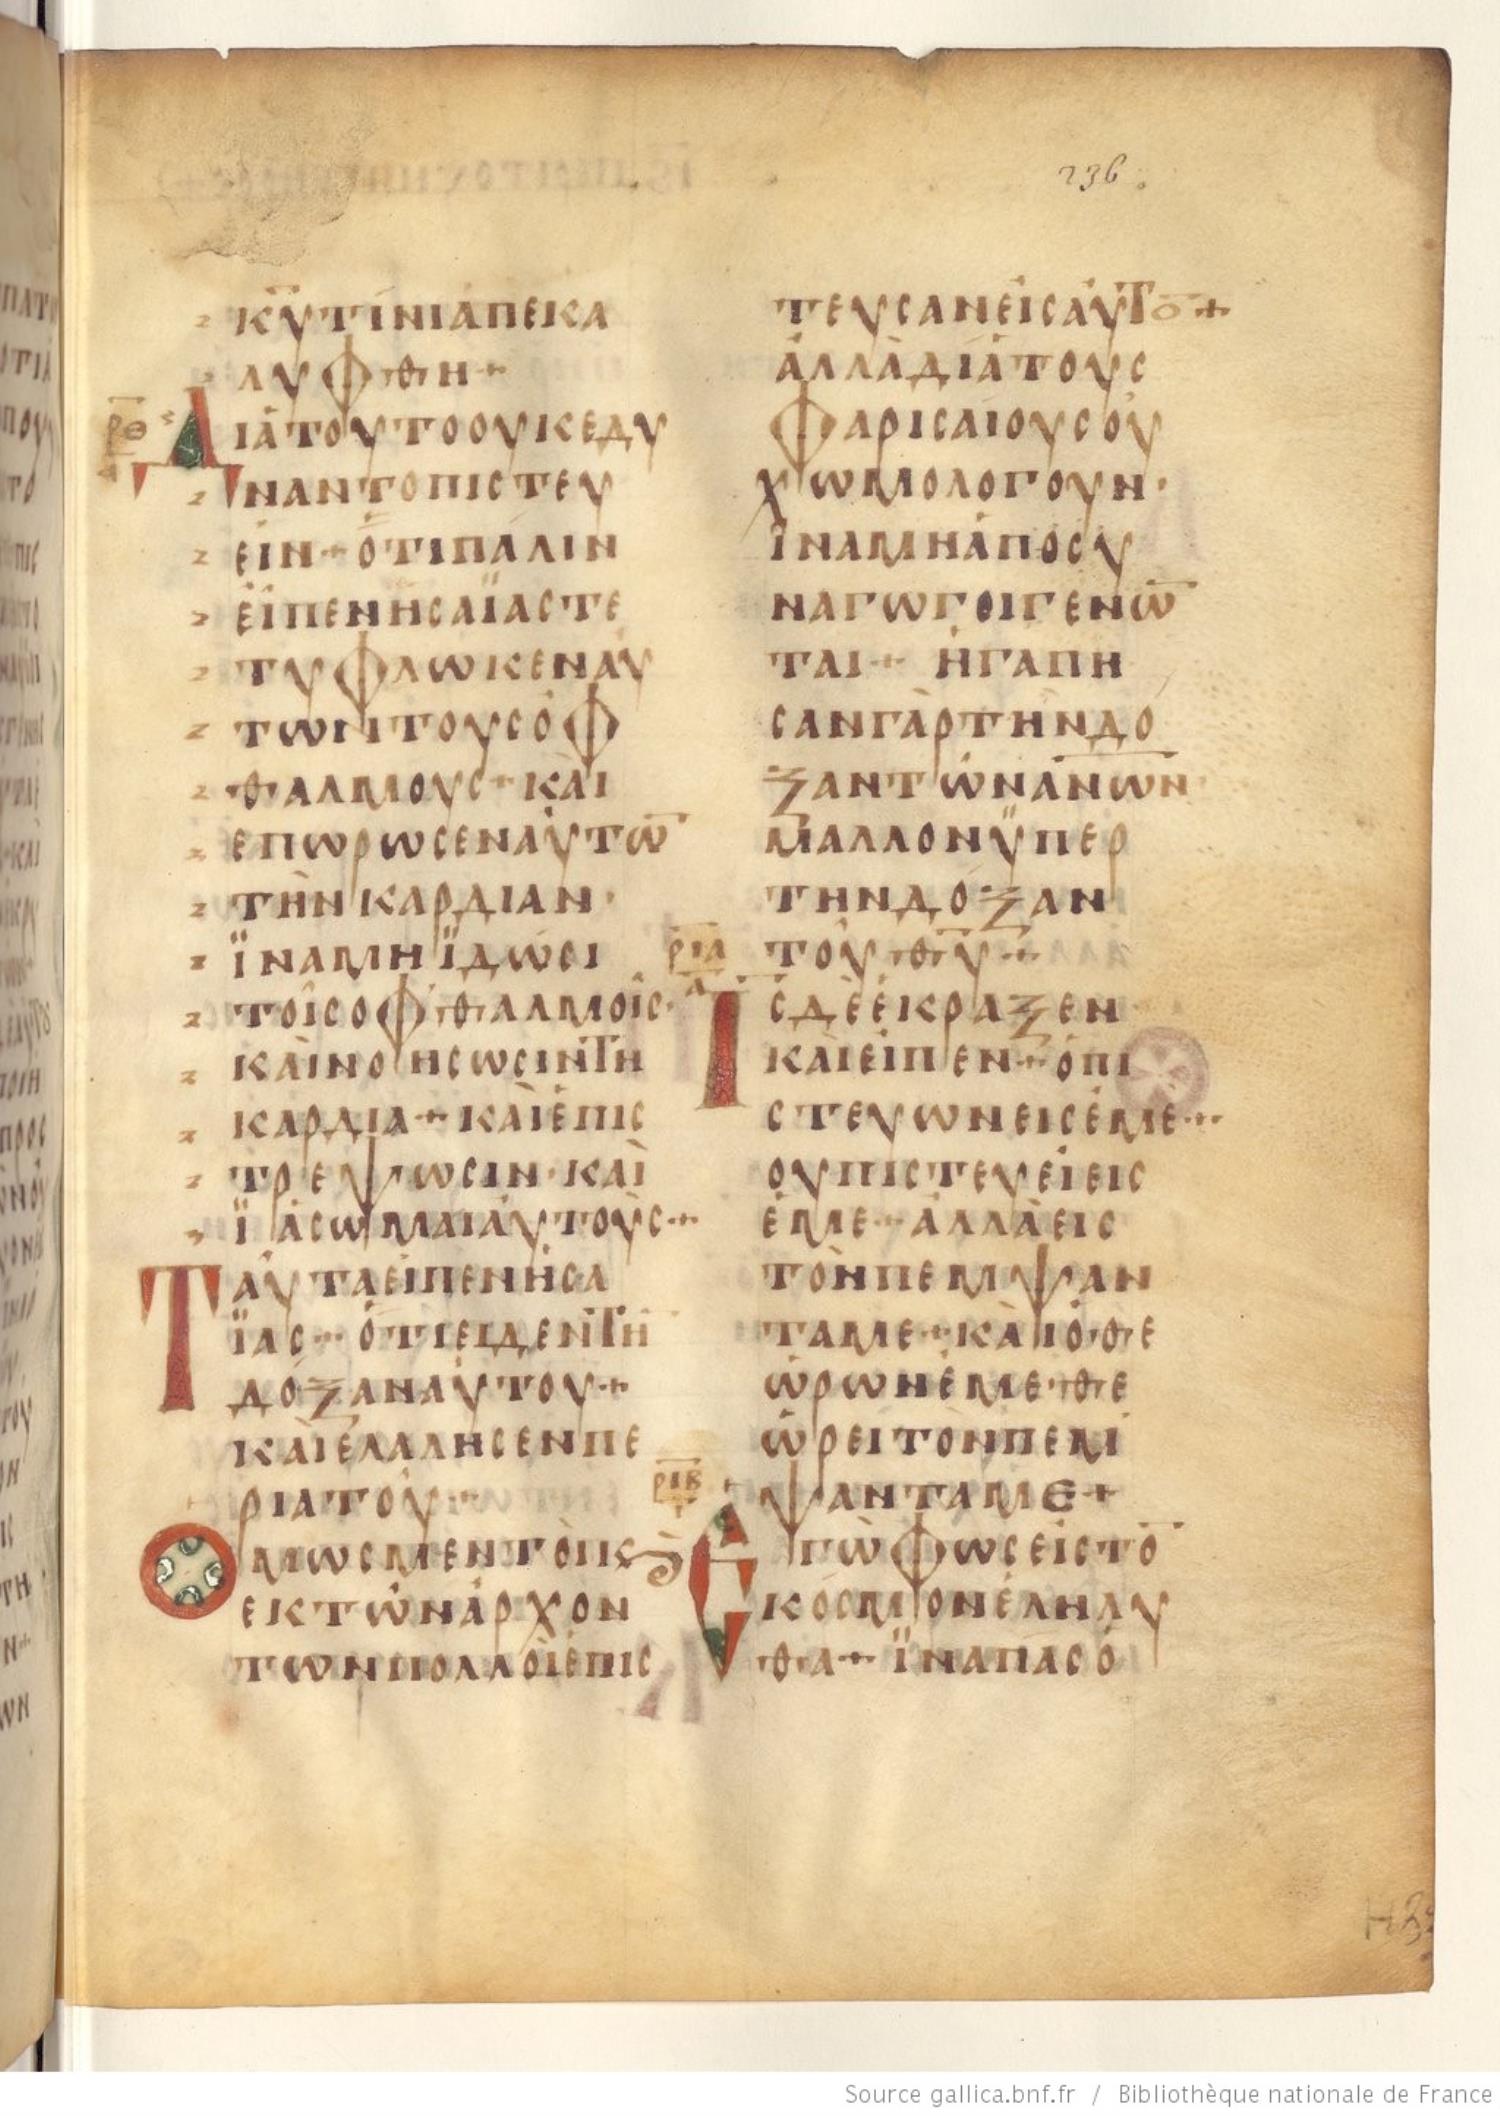 236
Κ̅Υ̅ΤΊΝΙἈΠΕΚΑ
ΛΥΦΘΗ+
Ρ̅Θ̅
ΔΙᾺΤΟΥΤΟΟΥΚΕΔΥ
ΝΑΝΤΟΠΙΣΤΕΥ
ΕΙΝ+ὍΤΙΠΑΛΙΝ
ΕΙΠΕΝΗΣΑΪΑΣΤΕ
ΤΥΦΛΩΚΕΝΑΥ
ΤΩΝΤΟΥΣΟΦ
ΘΑΛΜΟΥΣ+ΚΑΙ
ΕΠΩΡΩΣΕΝΑΥΤΩ̅
ΤΗΝΚΑΡΔΙΑΝ·
ΪΝΑΜΗΪΔΩΣΙ
ΤΟΙΣΟΦΘΑΛΜΟΙΣ·
ΚΑΙΝΟΗΣΩΣΙΝΤΗ
ΚΑΡΔΙΑ+ΚΑΙΕΠΙΣ
ΤΡΕΨΩΣΙΝ·ΚΑΙ
ΪΑΣΩΜΑΙΑΥΤΟΥΣ+
ΤΑΥΤΑΕΙΠΕΝΗΣΑ
ΪΑΣ+ΟΤΙΕΙΔΕΝΤΗ
ΔΟΞΑΝΑΥΤΟΥ+
ΚΑΙΕΛΑΛΗΣΕΝΠΕ
ΡΙΑΤΟΥ+
ΟΜΩΣΜΕΝΤΟΙΚϗ
ΕΚΤΩΝΑΡΧΟΝ
ΤΩΝΠΟΛΛΟΙΕΠΙΣ
ΤΕΥΣΑΝΕΙΣΑΥΤΟ̅+
ΑΛΛΑΔΙΑΤΟΥΣ
ΦΑΡΙΣΑΙΟΥΣΟΥ
ΧΩΜΟΛΟΓΟΥΝ·
ΪΝΑΜΗΑΠΟΣΥ
ΝΑΓΩΓΟΙΓΕΝΩ̅
ΤΑΙ+ΗΓΑΠΗ
ΣΑΝΓΑΡΤΗΝΔΟ
ΞΑΝΤΩΝΑ̅Ν̅ΩΝ
ΜΑΛΛΟΝΫΠΕΡ
ΤΗΝΔΟΞΑΝ
ΤΟΥΘ̅Υ̅+
Ρ̅Ι̅Α̅
Ι̅Σ̅ΔΕΕΚΡΑΞΕΝ
ΚΑΙΕΙΠΕΝ+ΟΠΙ
ΣΤΕΥΩΝΕΙΣΕΜΕ+
ΟΥΠΙΣΤΕΥΕΙΕΙΣ
ΕΜΕ+ΑΛΛΑΕΙΣ
ΤΟΝΠΕΜΨΑΝ
ΤΑΜΕ+ΚΑΙΟΘΕ
ΩΡΩΝΕΜΕ·ΘΕ
ΩΡΕΙΤΟΝΠΕΜ
ΨΑΝΤΑΜΕ+
Ρ̅Ι̅Β̅
ΕΓΩΦΩΣΕΙΣΤΟ̅
ΚΟΣΜΟΝΕΛΗΛΥ
ΘΑ+ΪΝΑΠΑΣΟ
Source gallica.bnf.fr / Bibliothèque nationale de France